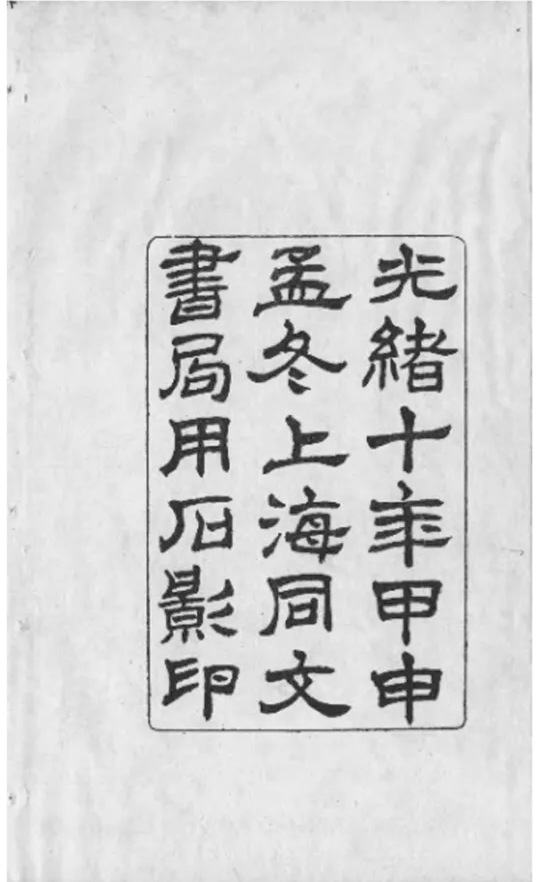 光緒十年甲申
孟冬上海同文
書局用石影印